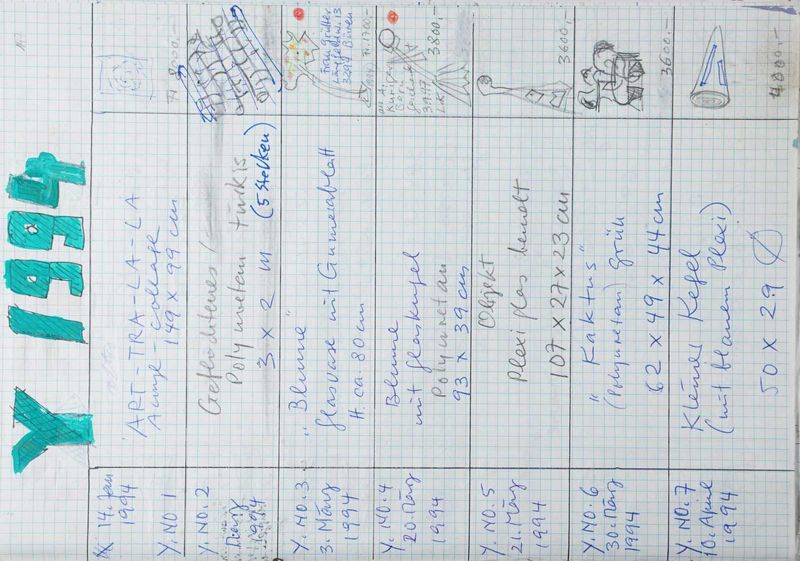 Y 1994
14. Jan
1994
Y. NO 1
ART-TRA-LA-LA
Collage
149 x 99 cm
Y. NO. 2
März
1994
Geflochtenes /
Polyuretan türkis
3 x 2 m (5 Stelken)
Y. NO. 3
3. März
1994
"Blume"
Glasvase mit Gummiablatt
H. ca. 80 cm
Y. NO. 4
20. März
1994
Blume
mit Glaskugel
Polyuretan
93 x 39 cm
3800.-
Y. NO. 5
21. März
1994
Objekt
Plexiglas bemalt
107 x 27 x 23 cm
3600.-
Y. NO. 6
30. März
1994
"Kaktus"
(Polyuretan) grün
62 x 49 x 44 cm
3600.-
Y. NO. 7
10. April
1994
Kleiner Kegel
(mit blauem Plexi)
50 x 29 Ø
4000.-